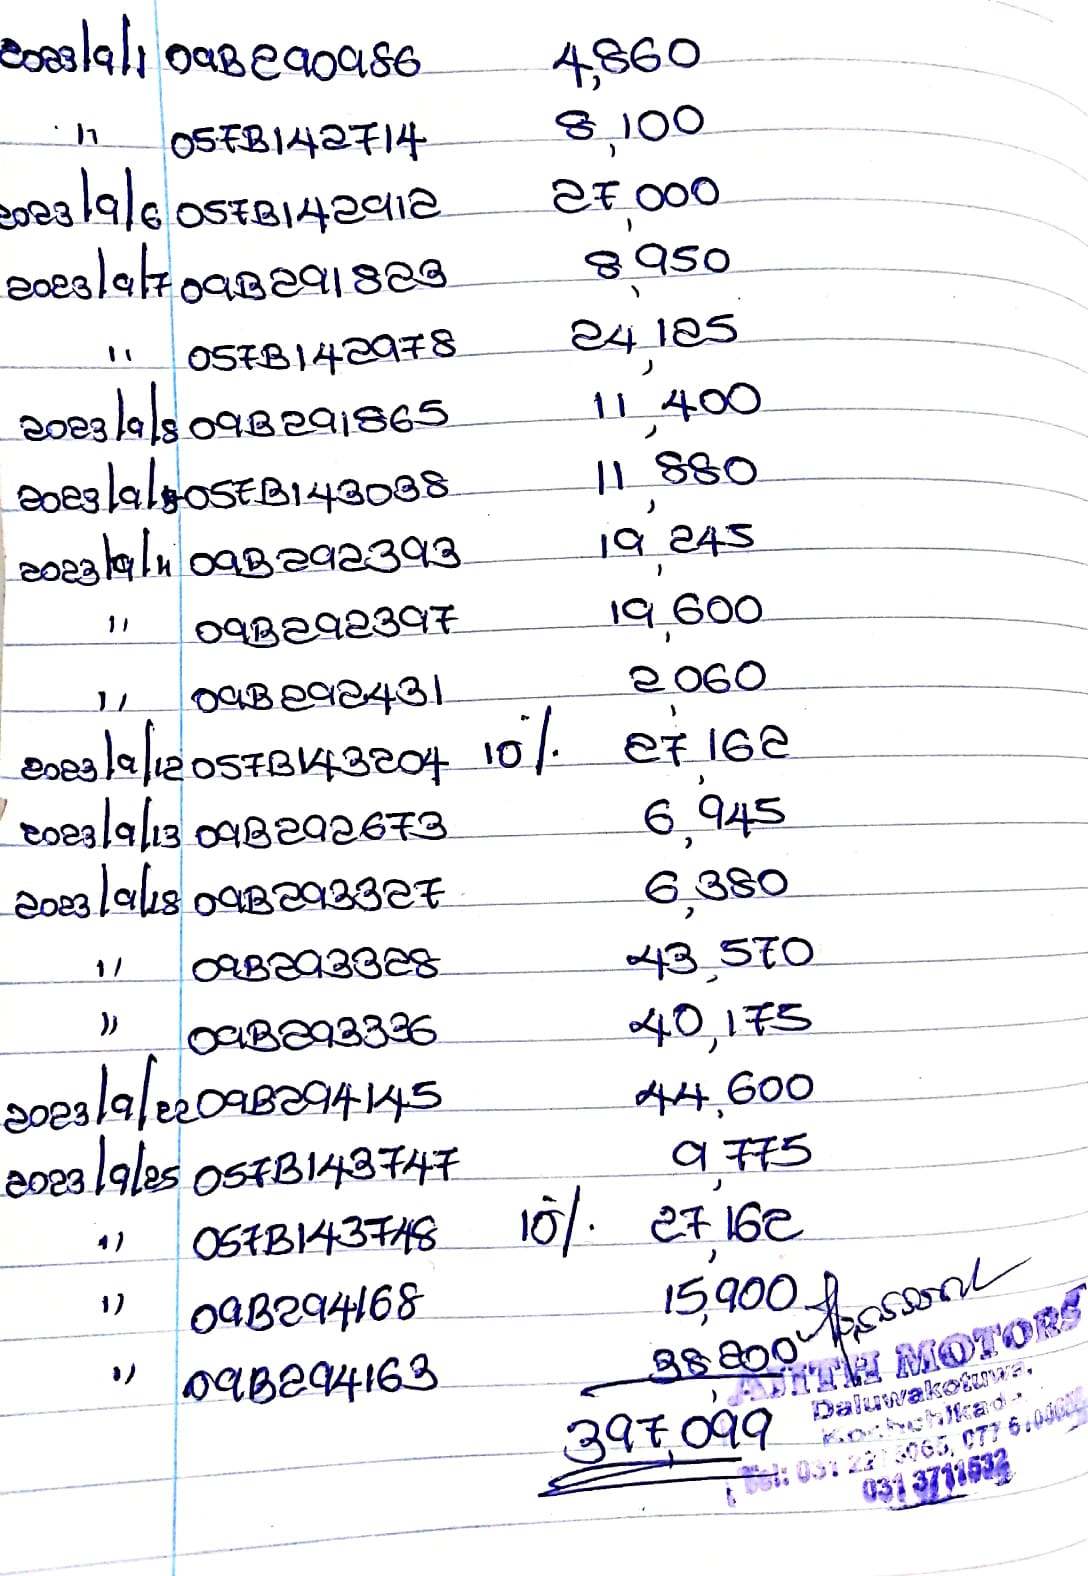 2023/9/1 09B290986 4,860
" 057B142714 8,100
2023/9/6 057B142912 27,000
2023/9/7 09B291823 8,950
" 057B142978 24,125
2023/9/8 09B291865 11,400
2023/9/8 057B143038 11,880
2023/9/11 09B292393 19,245
" 09B292397 19,600
" 09B292431 2,060
2023/9/12 057B143204 10% 27,162
2023/9/13 09B292673 6,945
2023/9/18 09B293327 6,380
" 09B293328 43,570
" 09B293336 40,175
2023/9/22 09B294145 44,600
2023/9/25 057B143747 9,775
" 057B143748 10% 27,162
" 09B294168 15,900
" 09B294163 38,200
397,099
AJITH MOTORS
Daluwakotuwa,
Tel: 031
031 3711532